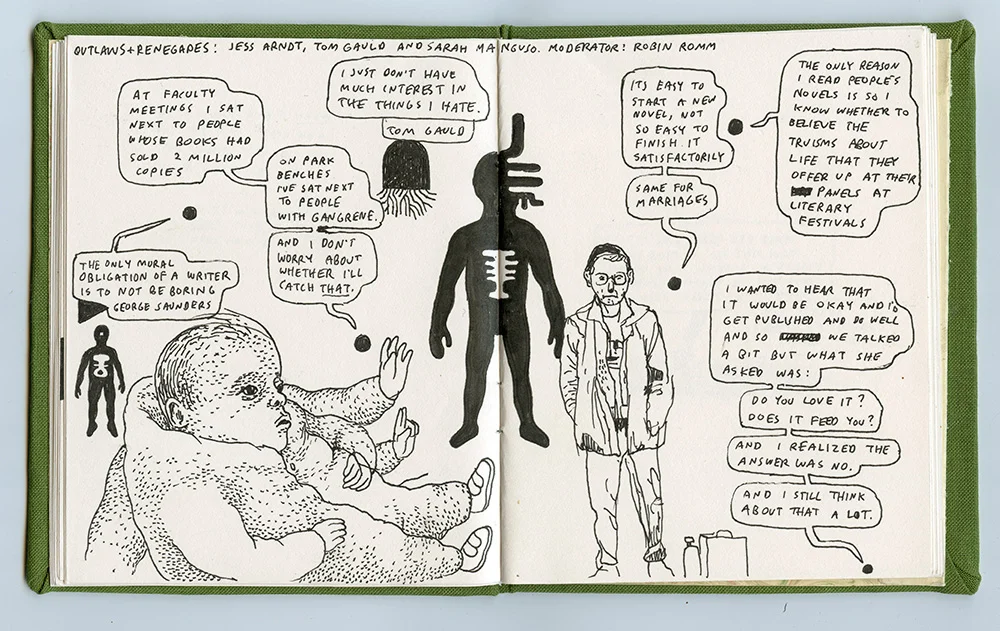 OUTLAWS+RENEGADES: JESS ARNDT, TOM GAULD AND SARAH MANGUSO. MODERATOR: ROBIN ROMM
AT FACULTY
MEETINGS I SAT
NEXT TO PEOPLE
WHOSE BOOKS HAD
SOLD 2 MILLION
COPIES
ON PARK
BENCHES
I'VE SAT NEXT
TO PEOPLE
WITH GANGRENE.
AND I DON'T
WORRY ABOUT
WHETHER I'LL
CATCH THAT.
I JUST DON'T HAVE
MUCH INTEREST IN
THE THINGS I HATE.
TOM GAULD
THE ONLY MORAL
OBLIGATION OF A WRITER
IS TO NOT BE BORING
GEORGE SAUNDERS
ITS EASY TO
START A NEW
NOVEL, NOT
SO EASY TO
FINISH IT
SATISFACTORILY
SAME FOR
MARRIAGES
THE ONLY REASON
I READ PEOPLE'S
NOVELS IS SO I
KNOW WHETHER TO
BELIEVE THE
TRUISMS ABOUT
LIFE THAT THEY
OFFER UP AT THEIR
PANELS AT
LITERARY
FESTIVALS
I WANTED TO HEAR THAT
IT WOULD BE OKAY AND I'D
GET PUBLISHED AND DO WELL
AND SO WE TALKED
A BIT BUT WHAT SHE
ASKED WAS:
DO YOU LOVE IT?
DOES IT FEED YOU?
AND I REALIZED THE
ANSWER WAS NO.
AND I STILL THINK
ABOUT THAT A LOT.